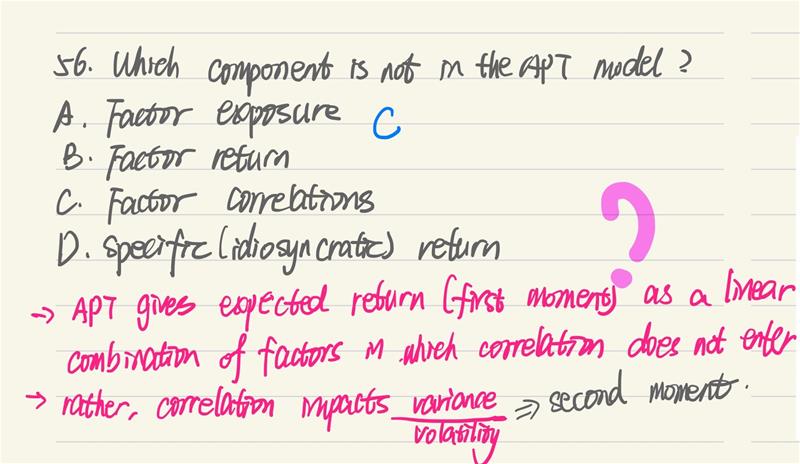 56. Which component is not in the APT model ?
A. Factor exposure C
B. Factor return
C. Factor correlations
D. Specific (idiosyncratic) return
?
→ APT gives expected return (first moment) as a linear
combination of factors in which correlation does not enter
→ rather, correlation impacts variance/volatility ⇒ second moment.